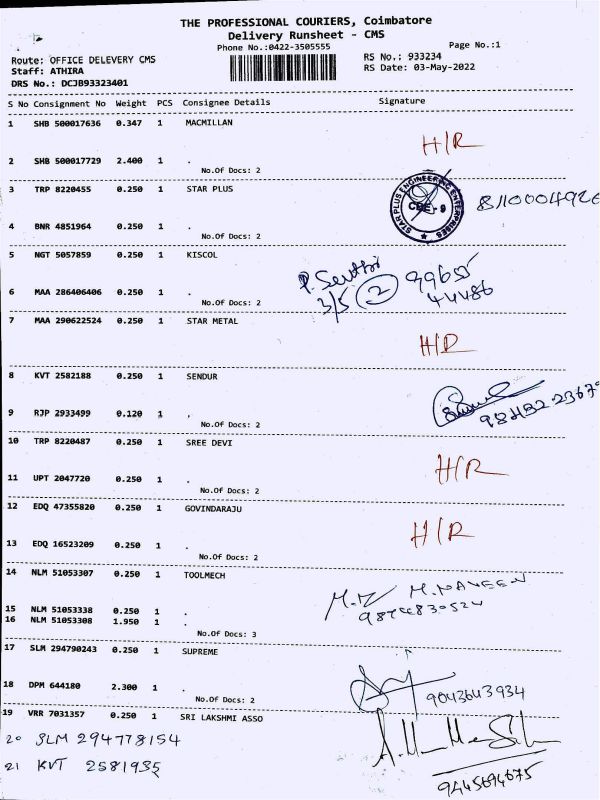 THE PROFESSIONAL COURIERS, Coimbatore
Delivery Runsheet - CMS
Phone No.:0422-3505555
Page No.:1
Route: OFFICE DELEVERY CMS
Staff: ATHIRA
DRS No.: DCJB93323401
RS No.: 933234
RS Date: 03-May-2022
S No Consignment No Weight PCS Consignee Details Signature
1 SHB 500017636 0.347 1 MACMILLAN
H/R
2 SHB 500017729 2.400 1 .
No.Of Docs: 2
3 TRP 8220455 0.250 1 STAR PLUS
STAR PLUS ENGINEERING ENTERPRISES
CBE - 9
8110004926
4 BNR 4851964 0.250 1 .
No.Of Docs: 2
5 NGT 5057859 0.250 1 KISCOL
3/5 2 99655
44486
6 MAA 286406406 0.250 1 .
No.Of Docs: 2
7 MAA 290622524 0.250 1 STAR METAL
H/R
8 KVT 2582188 0.250 1 SENDUR
9 RJP 2933499 0.120 1 .
No.Of Docs: 2
10 TRP 8220487 0.250 1 SREE DEVI
H/R
11 UPT 2047720 0.250 1 .
No.Of Docs: 2
12 EDQ 47355820 0.250 1 GOVINDARAJU
H/R
13 EDQ 16523209 0.250 1 .
No.Of Docs: 2
14 NLM 51053307 0.250 1 TOOLMECH
M. NAVEEN
15 NLM 51053338 0.250 1 .
16 NLM 51053308 1.950 1 .
No.Of Docs: 3
17 SLM 294790243 0.250 1 SUPREME
9043643934
18 DPM 644180 2.300 1 .
No.Of Docs: 2
19 VRR 7031357 0.250 1 SRI LAKSHMI ASSO
20 SLM 294778154
21 KVT 2581935
9445694675